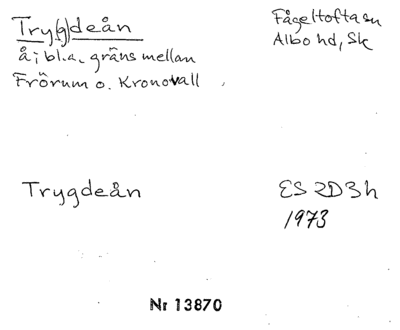 Try(g)deån
å; bl.a. gräns mellan
Frörum o. Kronovall
Fågeltofta sn
Albo hd, Sk
Trygdeån
ES 2D3h
1973
Nr 13870